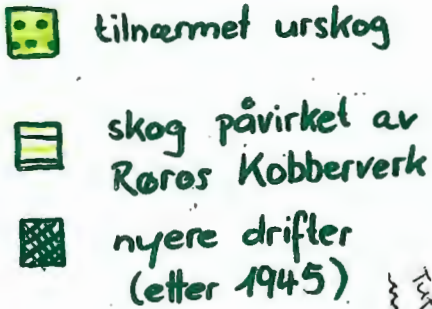 tilnærmet urskog
skog påvirket av
Røros Kobberverk
nyere drifter
(etter 1945)